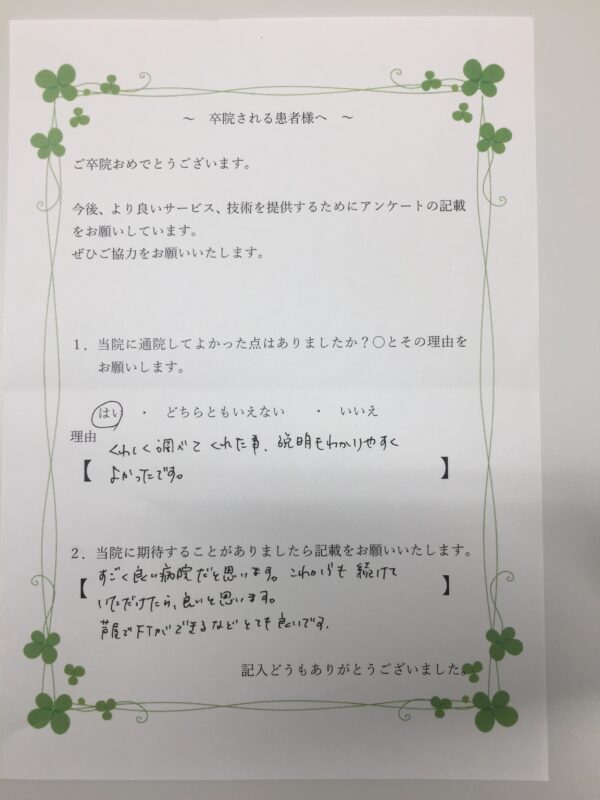 ～　卒院される患者様へ　～
ご卒院おめでとうございます。
今後、より良いサービス、技術を提供するためにアンケートの記載
をお願いしています。
ぜひご協力をお願いいたします。
１．当院に通院してよかった点はありましたか？〇とその理由を
お願いします。
はい　・　どちらともいえない　・　いいえ
理由
【 くわしく調べてくれた事、説明もわかりやすく
よかったです。 】
２．当院に期待することがありましたら記載をお願いいたします。
【 すごく良い病院だと思います。これからも続けて
いただけたら、良いと思います。 】
芦屋でFTができるなどとても良いです。
記入どうもありがとうございました。